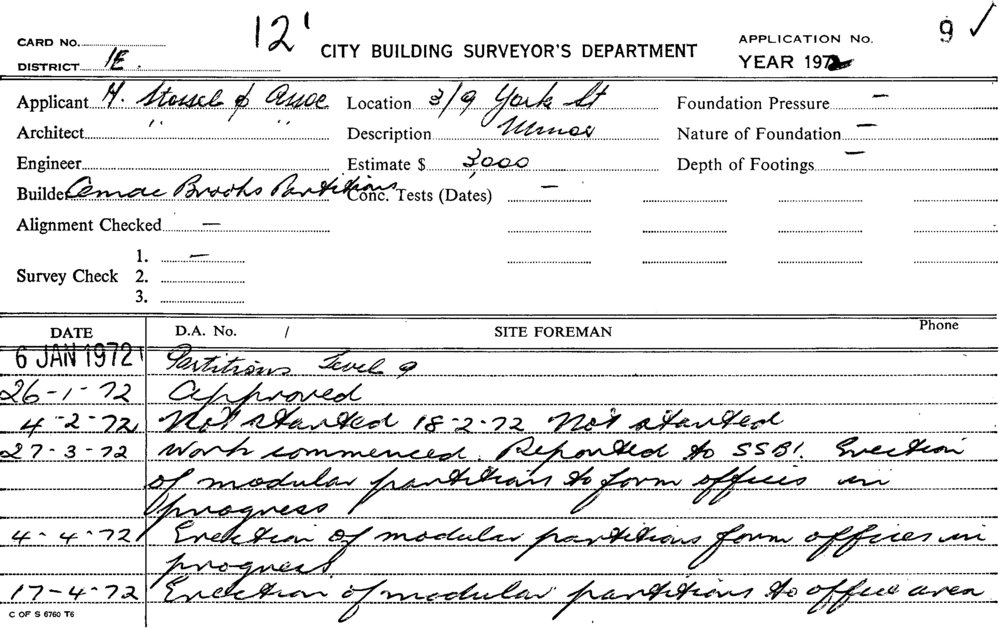 12'
9 ✓
CARD No.
CITY BUILDING SURVEYOR'S DEPARTMENT
APPLICATION No.
DISTRICT 1E.
YEAR 1972
Applicant H. Stossel & Assoc
Location 3/9 York St
Foundation Pressure —
Architect " "
Description Minor
Nature of Foundation —
Engineer
Estimate $ 3,000
Depth of Footings —
Builder Cemac Brooks Partitions
Conc. Tests (Dates) —
Alignment Checked —
Survey Check
1. —
2.
3.
DATE
D.A. No. /
SITE FOREMAN
Phone
6 JAN 1972 Partitions Level 9
26-1-72 Approved
4-2-72 Not started 18-2-72 Not started
27-3-72 Work commenced. Reported to SSBI. Erection
of modular partitions to form offices in
progress
4-4-72 Erection of modular partitions form offices in
progress
17-4-72 Erection of modular partitions to office area
C OF S 6760 T6